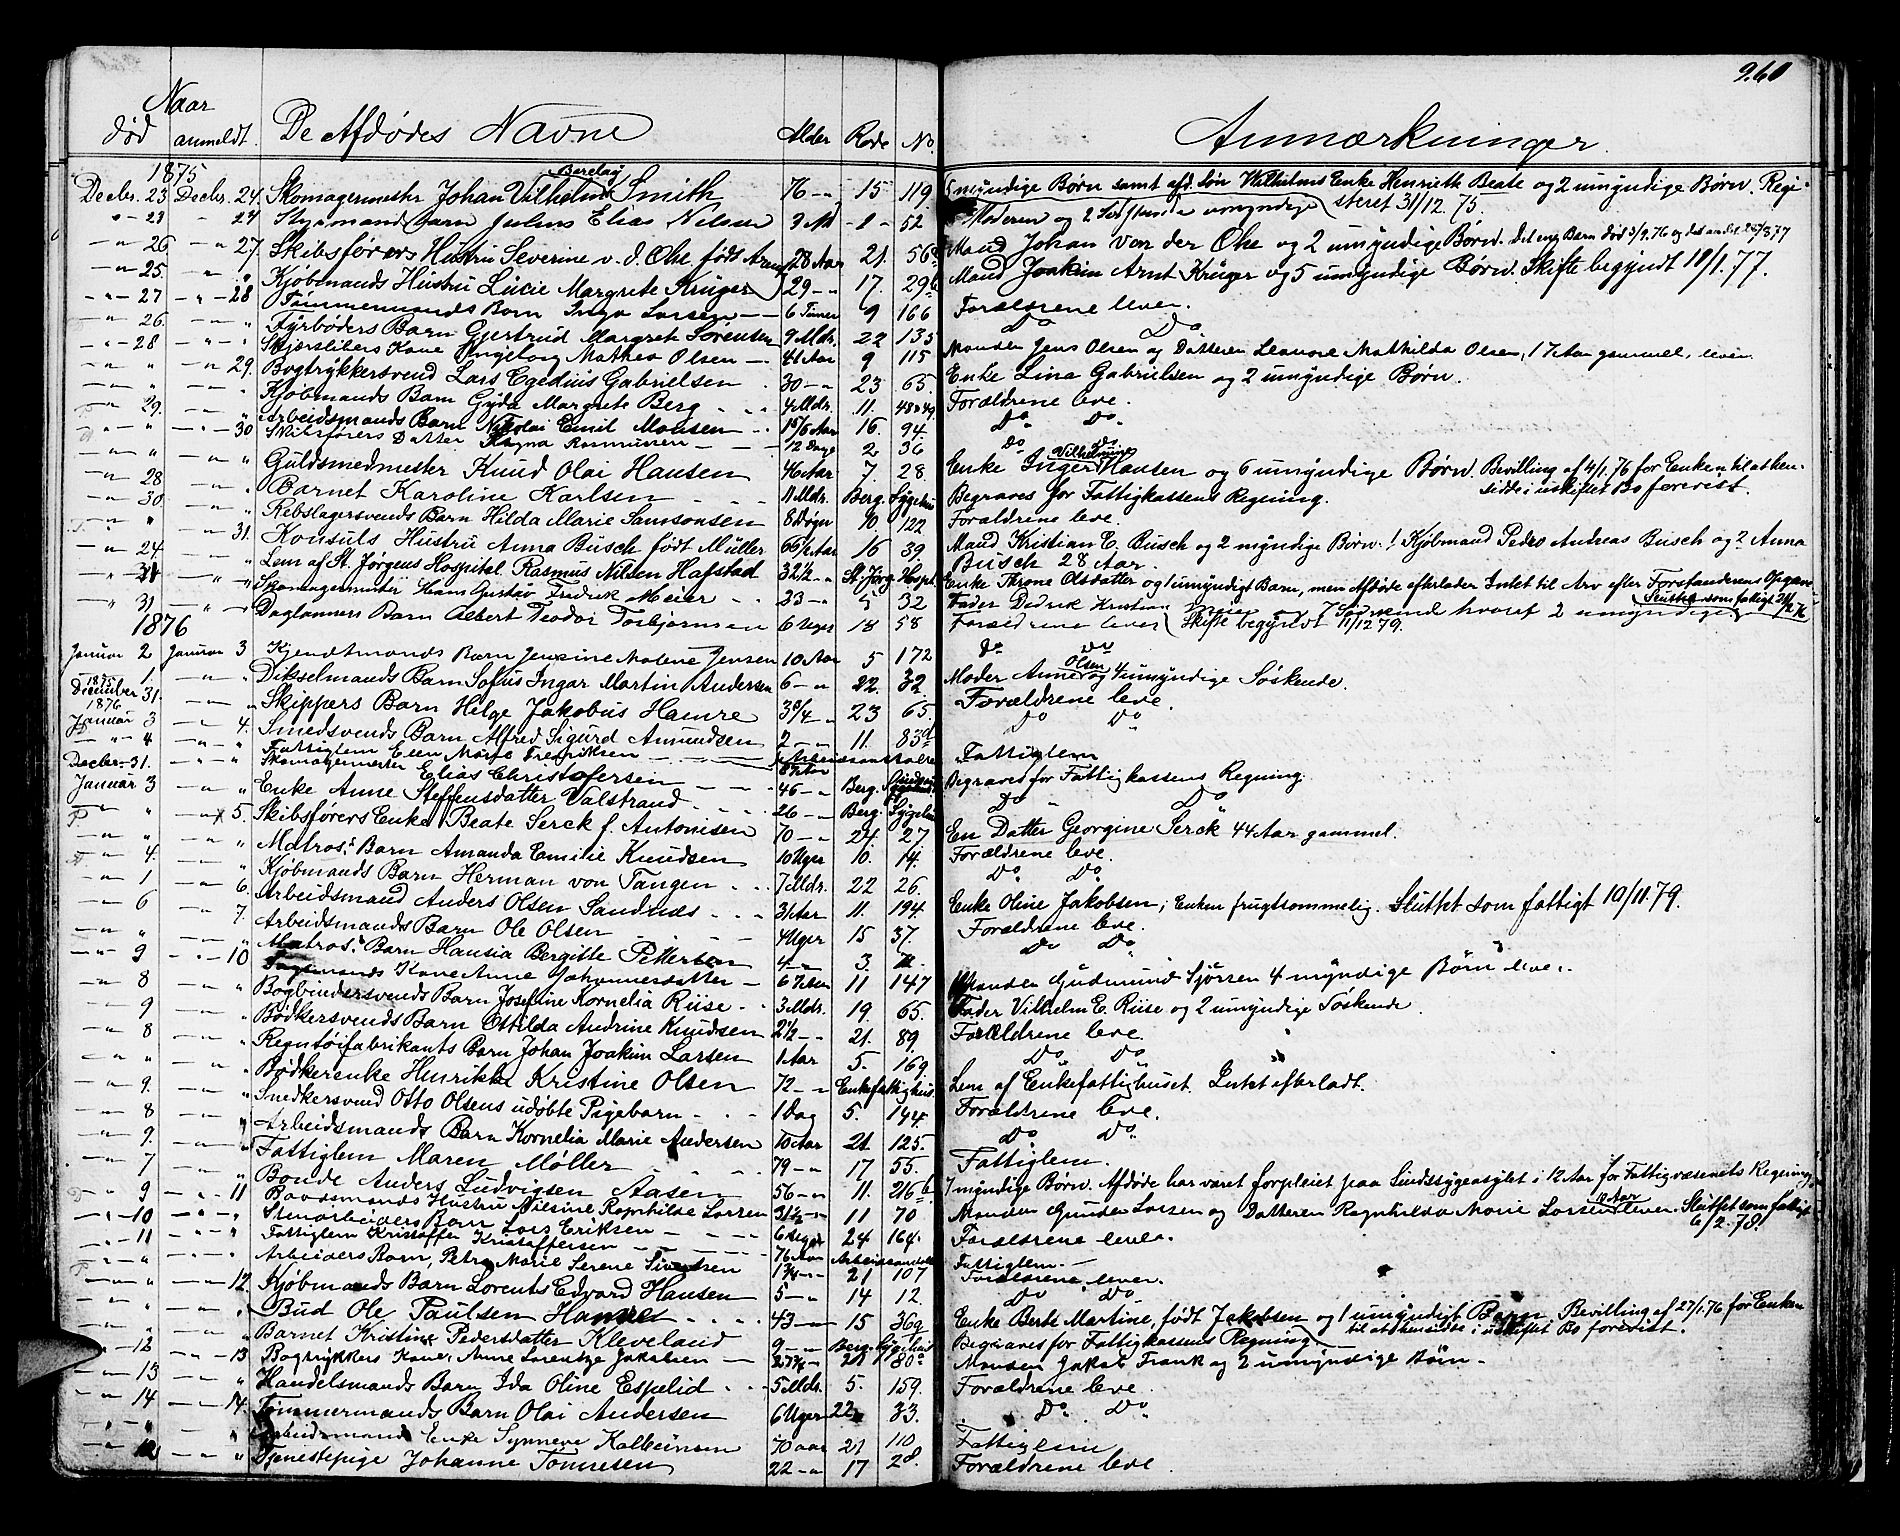 260
Naar
død anmeldt. De Afdødes Navne Alder Rode No. Anmærkninger.
1875
Decbr. 23 Decbr. 24. Skomagermester Johan Vilhelm Smith 76 -"- 15 119 myndige Børn samt afd. Søn Wilhelms Enke Henriette Beate og 2 umyndige Børn. Regi-
steret 31/12 75.
" - 23 " 24 barn Julius Elias Nilsen 3 M - 1 - 52 Moderen og 2 umyndige
-"- 26 -"- 27. Skibsførers Hustru Severine v. d. Ohe født 28 Aar 21. 56 Mand Johan von der Ohe og 2 umyndige Børn. Det ene Barn død 3/9.76 og det andet
-"- 25. -"- " Kjøbmands Hustru Lucie Margrete Krüger 29 -"- 17. 29 Mand Joakim Arnt Krüger og 5 umyndige Børn. Skifte begyndt 18/1.77.
-"- 27 -"- 28 Tømmermands Barn Inga Larsen 6 Timer 9 166 Forældrene lever.
-"- 26. -"- " Fyrbøders Barn Gjertrud Margrete Sørensen 9 Mdr. 22 135 Do Do
-"- 28 -"- " Skjærslibers Kone Ingeborg Mathea Olsen 41 Aar 9 115 Manden Jens Olsen og Datteren Leonore Mathilda Olsen, 17 Aar gammel, lever.
-"- " -"- 29. Bogtrykkersvend Lars Egedius Gabrielsen 30 -"- 23 65. Enke Lina Gabrielsen og 2 umyndige Børn.
-"- " " Kjøbmands Barn Gyda Margrete Berg 4 Mdr. 11. 48 & 49. Forældrene leve.
-"- 29. " Arbeidsmands Barn Nikolai Emil Monsen 1 5/6 Aar 16. 94. Do Do
-"- " -"- 30 Skibsførers Datter Ragna Rasmussen 12 Dage 2 36 Do Do
-"- " " Guldsmedmester Knud Olai Hansen 46 Aar 7. 28. Enke Inger Vilhelmine Hansen og 6 umyndige Børn. Bevilling af 4/1.76 for Enken til at hen-
sidde i uskiftet Bo forevist.
-"- 28 " Barnet Karoline Karlsen 11 Mdr. Berg. Sygehus Begraves for Fattigkassens Regning.
-"- 30. " Rebslagersvends Barn Hilda Marie Samsonsen 8 Døgn 10. 122 Forældrene leve.
-"- " -"- 31. Konsuls Hustru Anna Busch født Müller 66 1/2 Aar 16 39. Mand Kristian E. Busch og 2 myndige Børn: 1 Kjøbmand Pedro Andreas Busch og 2 Anna
Busch 28 Aar.
-"- 24. " Lem af St. Jørgens Hospital Rasmus Nilsen Hafstad 32 1/2 -"- St. Jørg. Hospit. Enke Throne Olsdatter og 1 umyndigt Barn, men Afdøde efterlader Intet til Arv efter Forstanderens Opgave
Sluttet som fattigt
-"- 31 -"- Skomagermester Hans Gustav Fredrik Meier 23 -"- 5 32 Fader Didrik Kristian Meier og 7 Søskende hvoraf 2 umyndige
Skifte begyndt 11/12 79.
-"- 31 -"- Daglønners Barn Albert Teodor Torbjørnsen 6 Uger 18 58 Forældrene lever
1876
Januar 2 Januar 3 Barn Jensine Malene Jensen 10 Aar 5 172 Do Do
-"- 1. -"- " Dikselmands Barn Sofus Ingar Martin Andersen 6 -"- 22. 32. Moder Anne Olsen og 4 umyndige Søskende.
1875
December 31. -"- " Skippers Barn Helge Jakobus Hamre 3 3/4 -"- 23 65. Forældrene leve.
1876
Januar 3 -"- 4. Smedsvends Barn Alfred Sigurd Amundsen 2 -"- 11. 83 Do Do
-"- 4 -"- " Fattiglem Ellen Marie Fredriksen Arbeidsanstalten Fattiglem
Decbr. 31. -"- " Skomagermester Elias Christofersen 46 -"- Berg. Begraves for Fattigkassens Regning.
Januar 3 -"- " Enke Anne Steffensdatter Valstrand 26 -"- Berg. Sygehus Do Do
" " -"- 5. Skibsførers Enke Beate Serck f. Antonisen 70 -"- 24. 27. En Datter Georgine Serck 44 Aar gammel.
-"- " " Matros' Barn Amanda Emilie Knudsen 10 Uger 10. 14. Forældrene leve.
-"- 4. " Kjøbmands Barn Herman von Tangen 7 Mdr. 22 26. Do Do
-"- 1 -"- 6. Arbeidsmand Anders Olsen Sandnæs 31 Aar 11. 194. Enke Oline Jakobsen; Enken frugtsommelig. Sluttet som fattigt 10/11.79.
-"- 6 -"- 7. Arbeidsmands Barn Ole Olsen 4 Uger 15 37. Forældrene leve.
-"- " " Matros' Barn Hansia Bergitte Pettersen 4 -"- 3. Do Do
-"- 9 -"- 10 Kone Anne Johannesdatter 11 147 Manden Gudmund Sjørsen 4 myndige Børn lever.
-"- 8 " Bogbindersvends Barn Josefine Kornelia Riise 3 Mdr. 19. 65. Fader Vilhelm E. Riise og 2 umyndige Søskende.
-"- 9 " Bødkersvends Barn Ottilda Andrine Knudsen 2 1/2 -"- 21. 89. Forældrene leve.
-"- 8 " Regntøifabrikants Barn Johan Joakim Larsen 1 Aar 5. 169. Do Do
-"- " " Bødkerenke Henrikke Kristine Olsen 72 -"- Enkefattighus. Lem af Enkefattighuset. Intet efterladt.
-"- 9. " Snedkersvend Otto Olsens udøbte Pigebarn 1 Dag 5. 144. Forældrene leve.
-"- 8 " Arbeidsmands Barn Kornelia Marie Andersen 10 Aar 21. 125. Do Do
-"- 9. " Fattiglem Maren Møller 79 -"- 17 55. Fattiglem.
-"- 7 " Bonde Anders Ludvigsen Aasen 56 -"- 11. 216 b 7 myndige Børn. Afdøde har været forpleiet paa Sindssygeasylet i 12 Aar for Fattigvæsenets Regning.
-"- 9 -"- 11 Baadsmands Hustru Nilsine Ragnhilde Larsen 31 1/2 -"- 11 70 Manden Gunder Larsen og Datteren Ragnhilda Marie Larsen 10 Aar lever. Sluttet som fattigt
6/2.78.
-"- 10 -"- " Stenarbeiders Barn Lars Eriksen 6 Uger 24 164. Forældrene lever.
-"- 11 -"- " Fattiglem Kristoffer Kristoffersen 76 Aar Arbeidsanstalten Fattiglem.
-"- " -"- " Arbeiders Barn, Petra Marie Serene Sivertsen 1 3/4 -"- 21 107 Forældrene lever.
-"- " -"- 12. Kjøbmands Barn Lorents Edvard Hansen 5 -"- 14 12. Do Do
-"- " " Bud Ole Paulsen Hamre 43 -"- 15 36 Enke Berte Martine, født Jakobsen og 1 umyndigt Barn. Bevilling af 27/1.76 for Enken
til at hensidde i uskiftet Bo forevist.
-"- " " Barnet Kristine Pedersdatter Kleveland 9 -"- Berg. Sygehus Begraves for Fattigkassens Regning
-"- 12 -"- 13 Bogtrykkers Kone Anne Lorentze Jakobsen 21 80 Manden Jakob Frank og 2 umyndige Børn.
-"- 13 " Handelsmands Barn Ida Oline Espelid 5 Mdr. 5. 159. Forældrene leve.
-"- 14 -"- 14. Tømmermands Barn Olai Andersen 6 Uger 22 33. Do Do
-"- " " Arbeidsmands Enke Synneve 70 aar 21 110 Fattiglem
-"- 12 " Tjenestepige Johanne Tomresen 22 -"- 17 28. Forældrene leve.